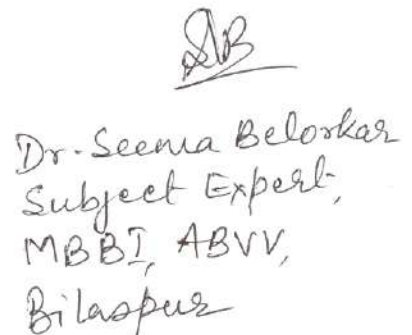 SB
Dr. Seema Belorkar
Subject Expert,
MBBI, ABVV,
Bilaspur